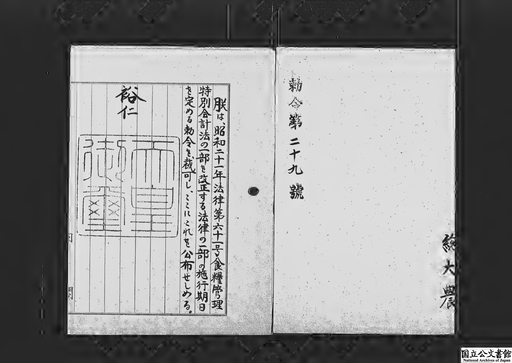 勅令第二十九號
総大農
朕は、昭和二十一年法律第六十一号食糧管理
特別会計法の一部を改正する法律の一部の施行期日
を定める勅令を裁可し、ここにこれを公布せしめる。
裕仁
天皇
御璽
国立公文書館
National Archives of Japan